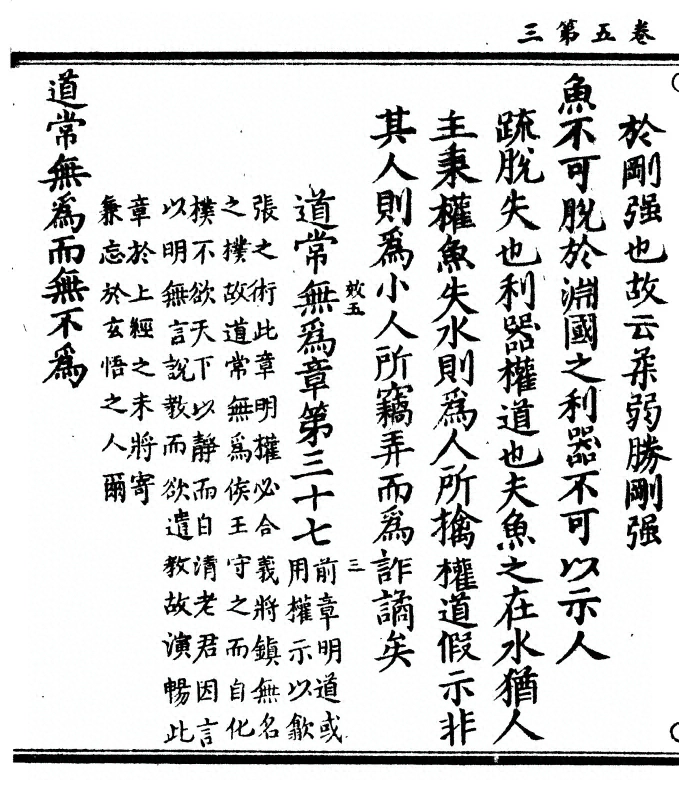 卷五第三
於剛强也故云柔弱勝剛强
魚不可脫於淵國之利器不可以示人
疏脫失也利器權道也夫魚之在水猶人
主秉權魚失水則爲人所擒權道假示非
其人則爲小人所竊弄而爲詐譎矣
效五
三
道常無爲章第三十七
前章明道或
用權示以歙
張之術此章明權必合義將鎮無名
之樸故道常無爲侯王守之而自化
樸不欲天下以靜而自清老君因言
以明無言說教而欲遣教故演暢此
章於上經之末將寄
兼忘於玄悟之人爾
道常無爲而無不爲